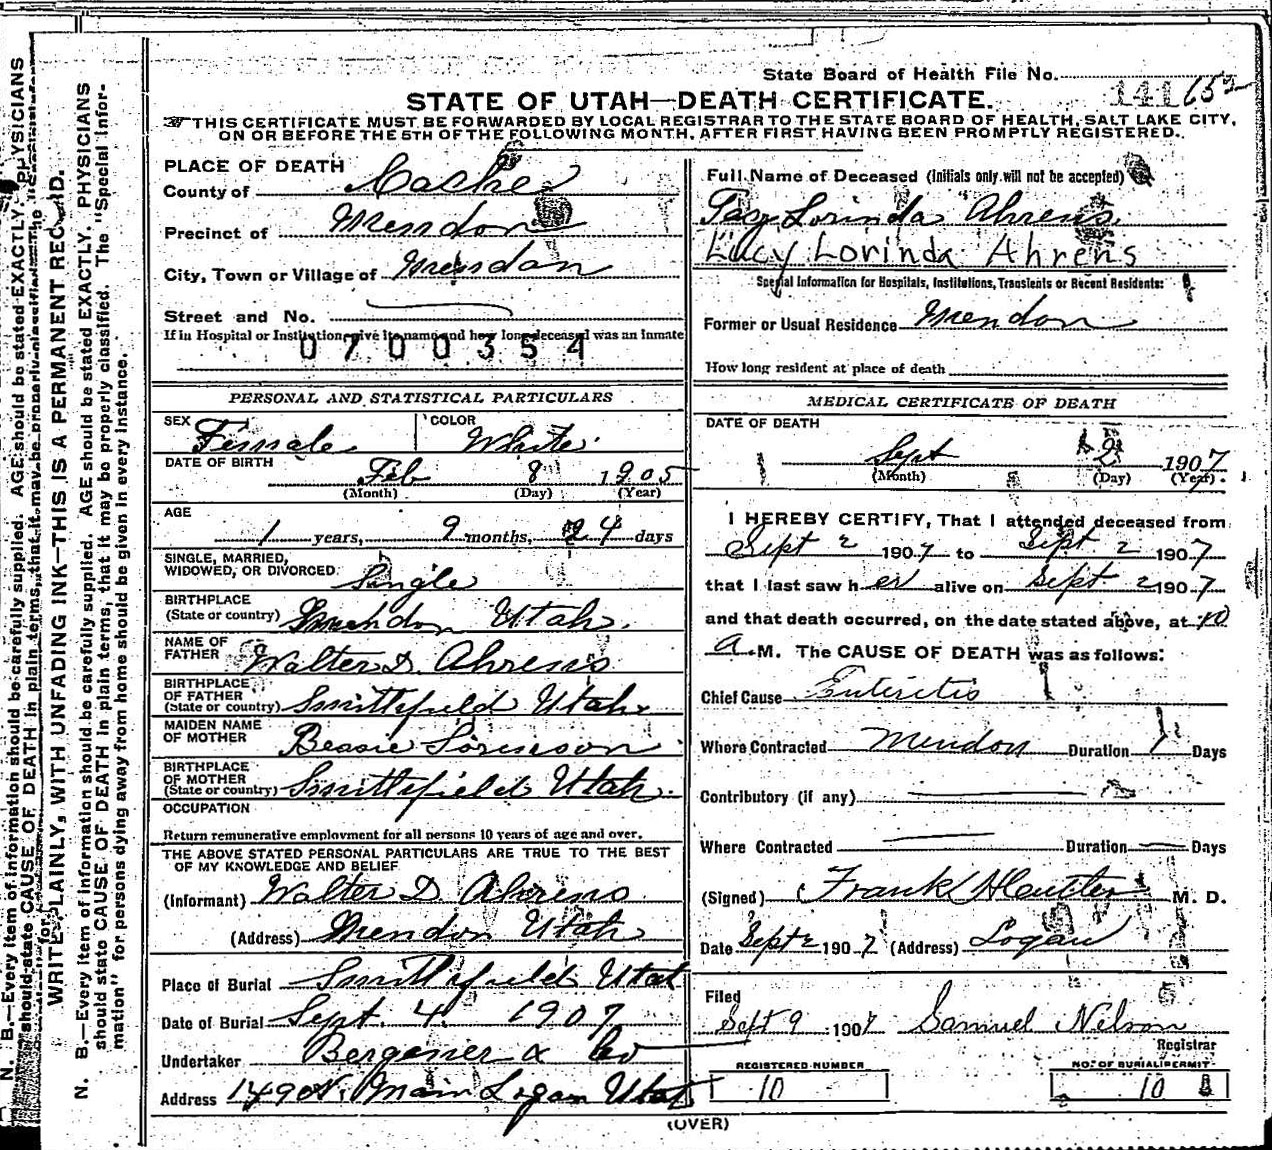 State Board of Health File No. 141 652
STATE OF UTAH—DEATH CERTIFICATE.
THIS CERTIFICATE MUST BE FORWARDED BY LOCAL REGISTRAR TO THE STATE BOARD OF HEALTH, SALT LAKE CITY,
ON OR BEFORE THE 5TH OF THE FOLLOWING MONTH, AFTER FIRST HAVING BEEN PROMPTLY REGISTERED.
PLACE OF DEATH
County of Cache
Precinct of Mendon
City, Town or Village of Mendon
Street and No.
If in Hospital or Institution, give its name and how long deceased was an inmate
0700354
PERSONAL AND STATISTICAL PARTICULARS
SEX Female COLOR White
DATE OF BIRTH Feb 8 1905
(Month) (Day) (Year)
AGE
1 years, 9 months, 24 days
SINGLE, MARRIED,
WIDOWED, OR DIVORCED Single
BIRTHPLACE
(State or country) Mendon Utah.
NAME OF
FATHER Walter D. Ahrens
BIRTHPLACE
OF FATHER
(State or country) Smithfield Utah.
MAIDEN NAME
OF MOTHER Bessie Sorenson
BIRTHPLACE
OF MOTHER
(State or country) Smithfield Utah.
OCCUPATION
Return remunerative employment for all persons 10 years of age and over.
THE ABOVE STATED PERSONAL PARTICULARS ARE TRUE TO THE BEST
OF MY KNOWLEDGE AND BELIEF
(Informant) Walter D Ahrens
(Address) Mendon Utah
Place of Burial Smithfield Utah
Date of Burial Sept. 4. 1907
Undertaker Bergener & Co
Address 149 N. Main Logan Utah
Full Name of Deceased (Initials only will not be accepted)
Lorinda Ahrens
Lucy Lorinda Ahrens
Special Information for Hospitals, Institutions, Transients or Recent Residents:
Former or Usual Residence Mendon
How long resident at place of death
MEDICAL CERTIFICATE OF DEATH
DATE OF DEATH
Sept 2 1907
(Month) (Day) (Year)
I HEREBY CERTIFY, That I attended deceased from
Sept 2 1907 to Sept 2 1907
that I last saw her alive on Sept 2 1907
and that death occurred, on the date stated above, at 10
A.M. The CAUSE OF DEATH was as follows:
Chief Cause Enteritis
Where Contracted Mendon Duration 1 Days
Contributory (if any)
Where Contracted Duration Days
(Signed) Frank M. D.
Date Sept 2 1907 (Address) Logan
Filed
Sept 9 1907 Samuel Nelson
Registrar
REGISTERED NUMBER NO. OF BURIAL PERMIT
10 10
(OVER)
N. B.—Every item of information should be carefully supplied. AGE should be stated EXACTLY. PHYSICIANS
should state CAUSE OF DEATH in plain terms, that it may be properly classified. The "Special
WRITE PLAINLY, WITH UNFADING INK—THIS IS A PERMANENT RECORD.
N. B.—Every item of information should be carefully supplied. AGE should be stated EXACTLY. PHYSICIANS
should state CAUSE OF DEATH in plain terms, that it may be properly classified. The "Special Infor-
mation" for persons dying away from home should be given in every instance.